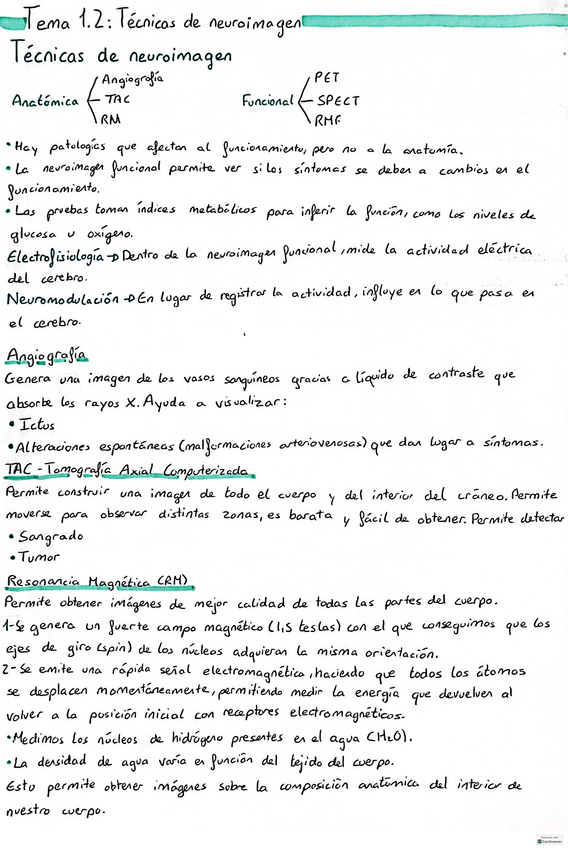 Tema 1.2: Técnicas de neuroimagen
Técnicas de neuroimagen
Anatómica
Angiografía
TAC
RM
Funcional
PET
SPECT
RMF
• Hay patologías que afectan al funcionamiento, pero no a la anatomía.
• La neuroimagen funcional permite ver si los síntomas se deben a cambios en el
funcionamiento.
• Las pruebas toman índices metabólicos para inferir la función, como los niveles de
glucosa u oxígeno.
Electrofisiología → Dentro de la neuroimagen funcional, mide la actividad eléctrica
del cerebro.
Neuromodulación → En lugar de registrar la actividad, influye en lo que pasa en
el cerebro.
Angiografía
Genera una imagen de los vasos sanguíneos gracias a líquido de contraste que
absorbe los rayos X. Ayuda a visualizar:
• Ictus
• Alteraciones espontáneas (malformaciones arteriovenosas) que dan lugar a síntomas.
TAC - Tomografía Axial Computerizada
Permite construir una imagen de todo el cuerpo y del interior del cráneo. Permite
moverse para observar distintas zonas, es barata y fácil de obtener. Permite detectar
• Sangrado
• Tumor
Resonancia Magnética (RM)
Permite obtener imágenes de mejor calidad de todas las partes del cuerpo.
1- Se genera un fuerte campo magnético (1,5 teslas) con el que conseguimos que los
ejes de giro (spin) de los núcleos adquieran la misma orientación.
2- Se emite una rápida señal electromagnética, haciendo que todos los átomos
se desplacen momentáneamente, permitiendo medir la energía que devuelven al
volver a la posición inicial con receptores electromagnéticos.
• Medimos los núcleos de hidrógeno presentes en el agua (H₂O).
• La densidad de agua varía en función del tejido del cuerpo.
Esto permite obtener imágenes sobre la composición anatómica del interior de
nuestro cuerpo.
CamScanner